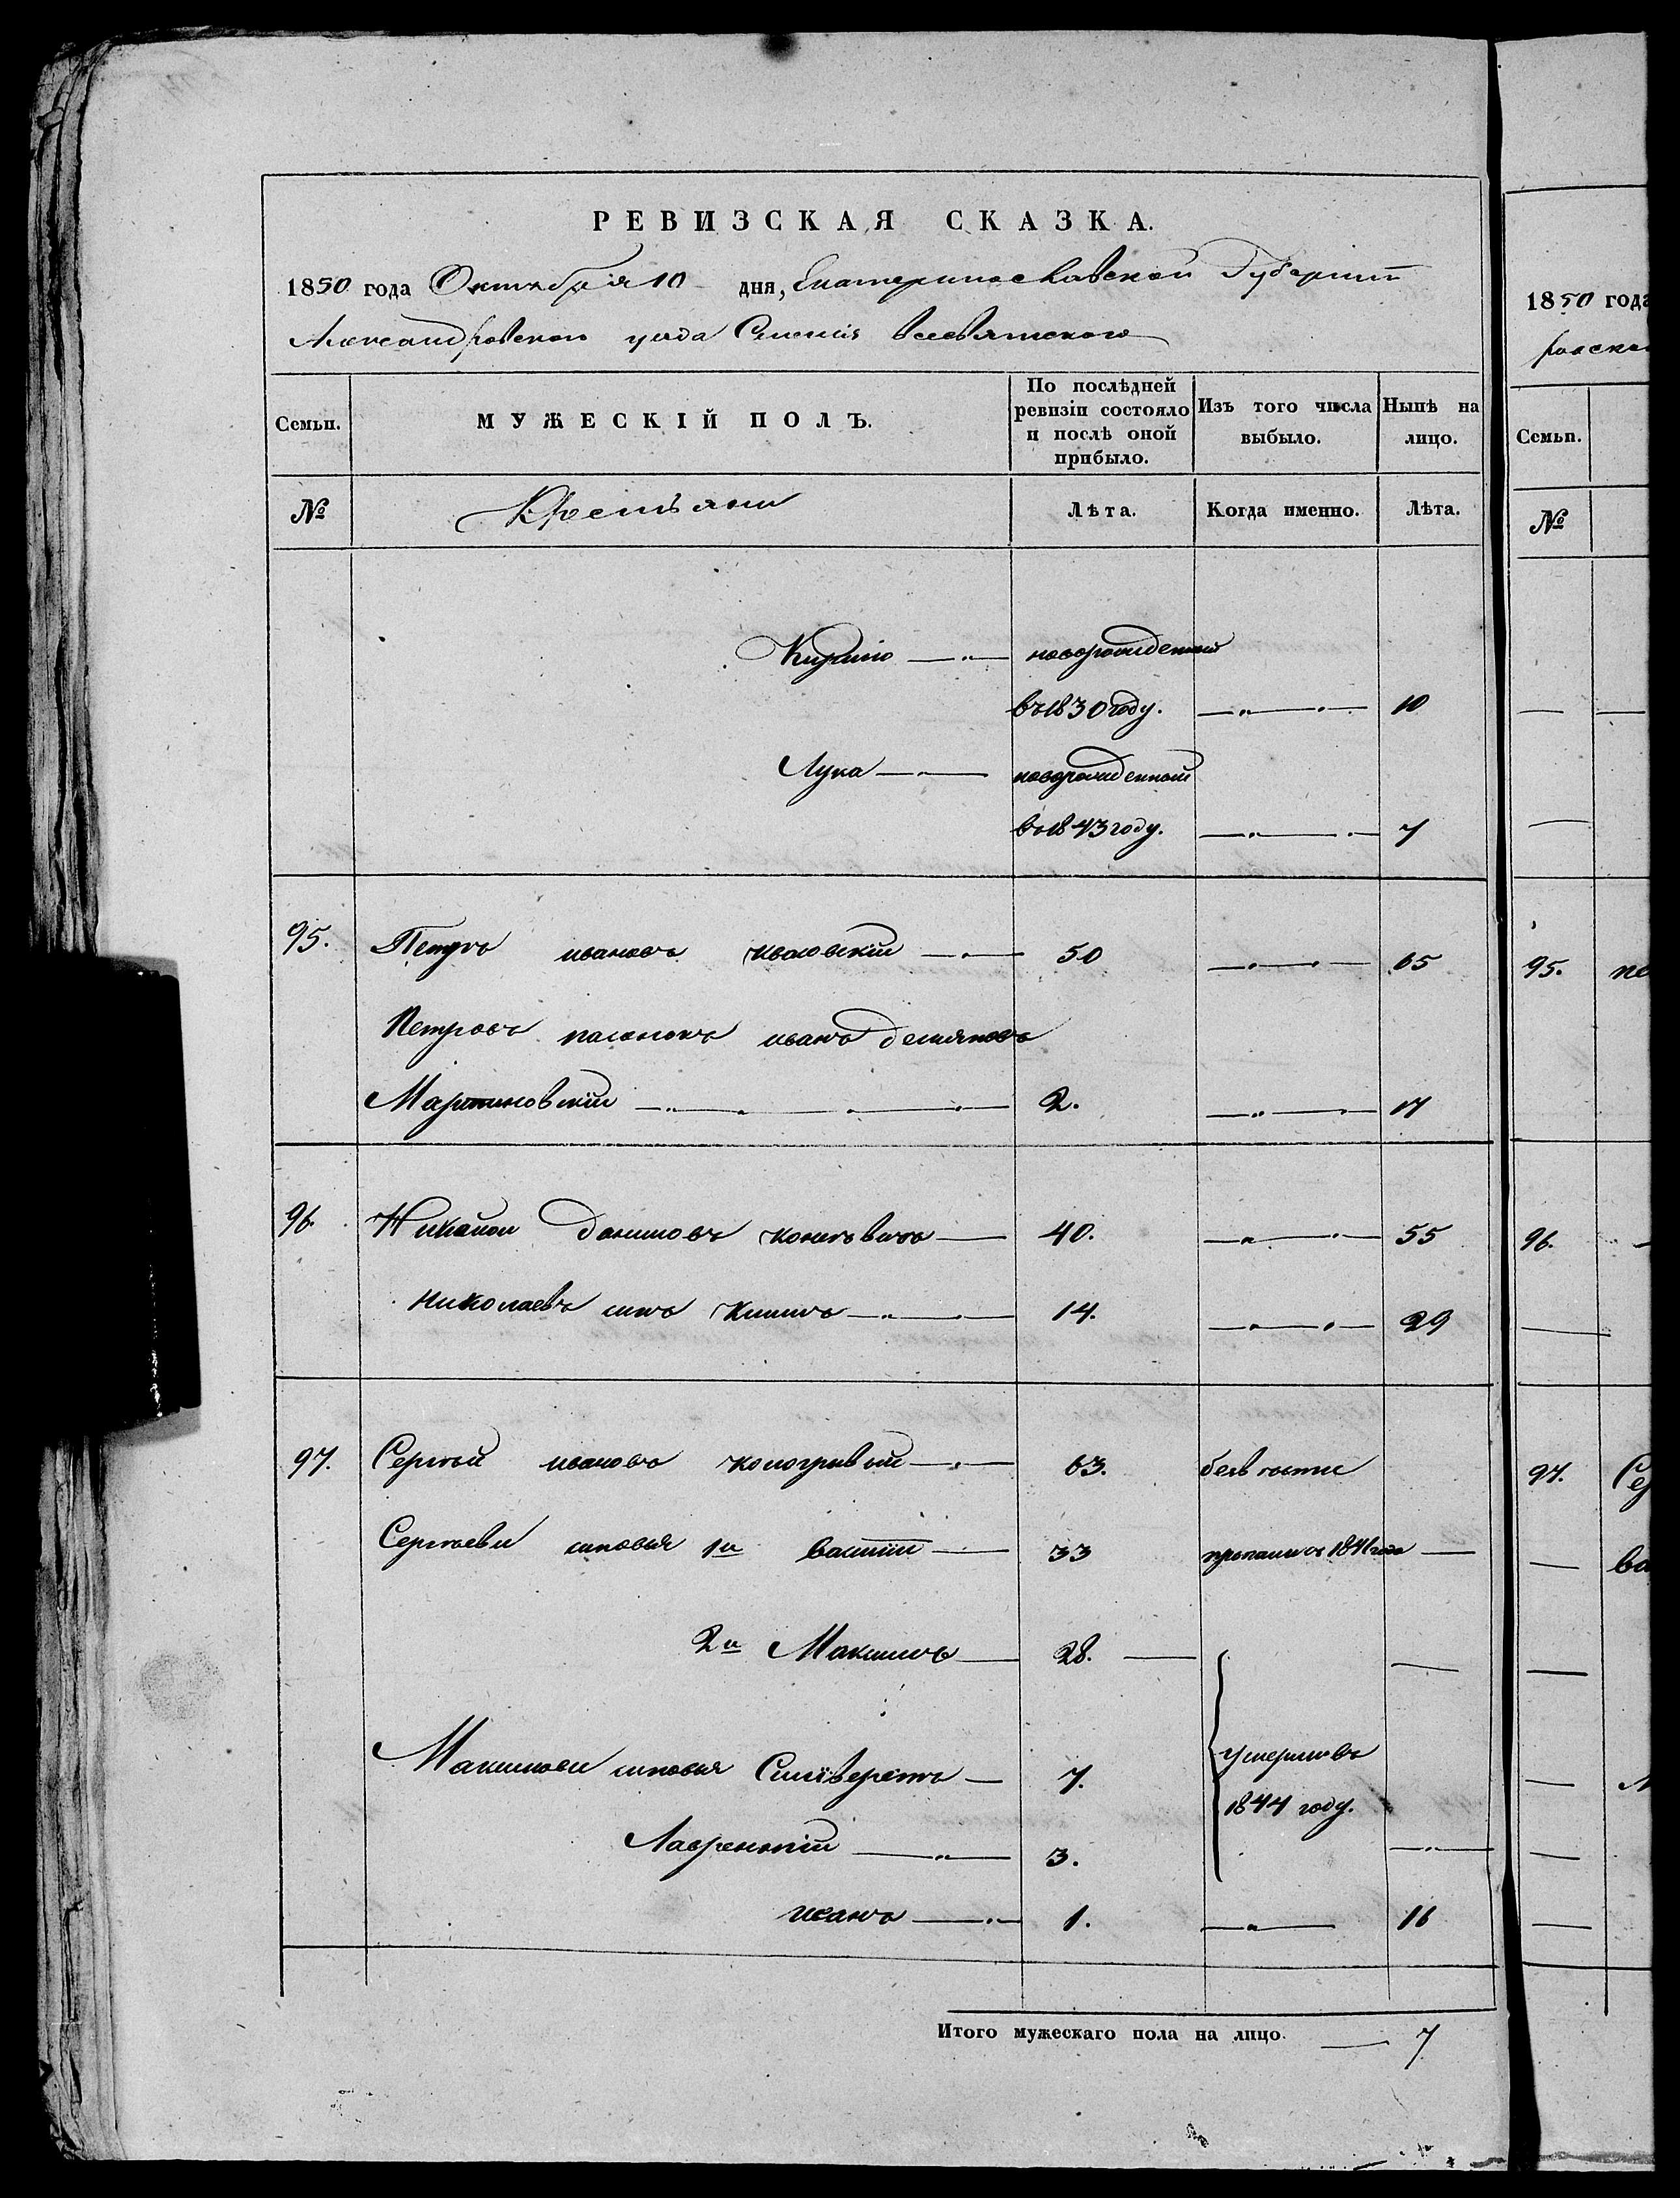 РЕВИЗСКАЯ СКАЗКА.
1850 года Октября 10 дня, Екатеринославской Губернiи
Александровского уезда Селенiя Всевятского
Семьи. МУЖЕСКІЙ ПОЛЪ. По послѣдней ревизіи состояло и послѣ оной прибыло. Изъ того числа выбыло. Нынѣ на лицо.
№ Крестьяни Лѣта. Когда именно. Лѣта.
новорожденный
въ 1830 году. 10
Лука новорожденный
въ 1843 году. 7
95. Петръ ивановъ 50 65
Петровъ пасынокъ иванъ демяновъ
Мартиновскiй 2. 17
96. Николай даниловъ 40. 55
Николаевъ сынъ 14. 29
97. Сергѣй ивановъ кологривый 63. безъ вести
Сергѣеви сыновья 1й василiй 33 пропали съ 1841 года
2й Максимъ 28.
Максимови сыновья Силиверстъ 7. умерли въ
1844 году.
Лаврентiй 3.
иванъ 1. 16
Итого мужескаго пола на лицо. 7
1850 года
Семьи.
№
95.
96.
97.